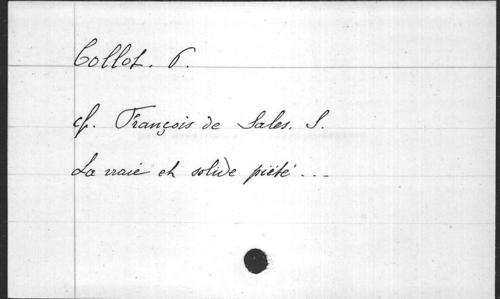 Collot. P.
cf. François de Sales. S.
La vraie et solide piété ...